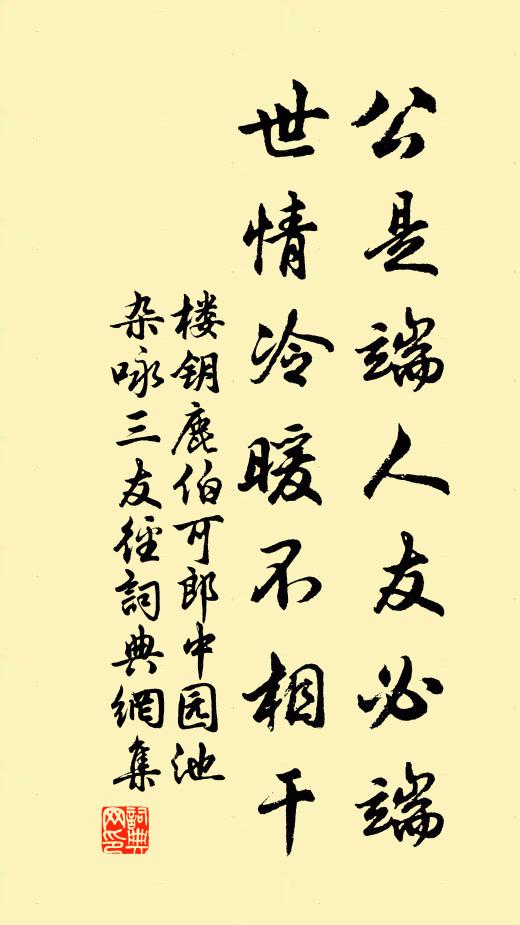 公是端人友必端
世情冷暖不相干
楼钥鹿伯可郎中园池
杂咏三友径詞典網集
詞典網印